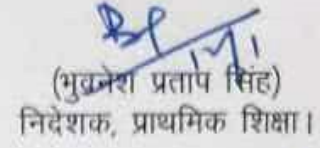 (भुवनेश प्रताप सिंह)
निदेशक, प्राथमिक शिक्षा।